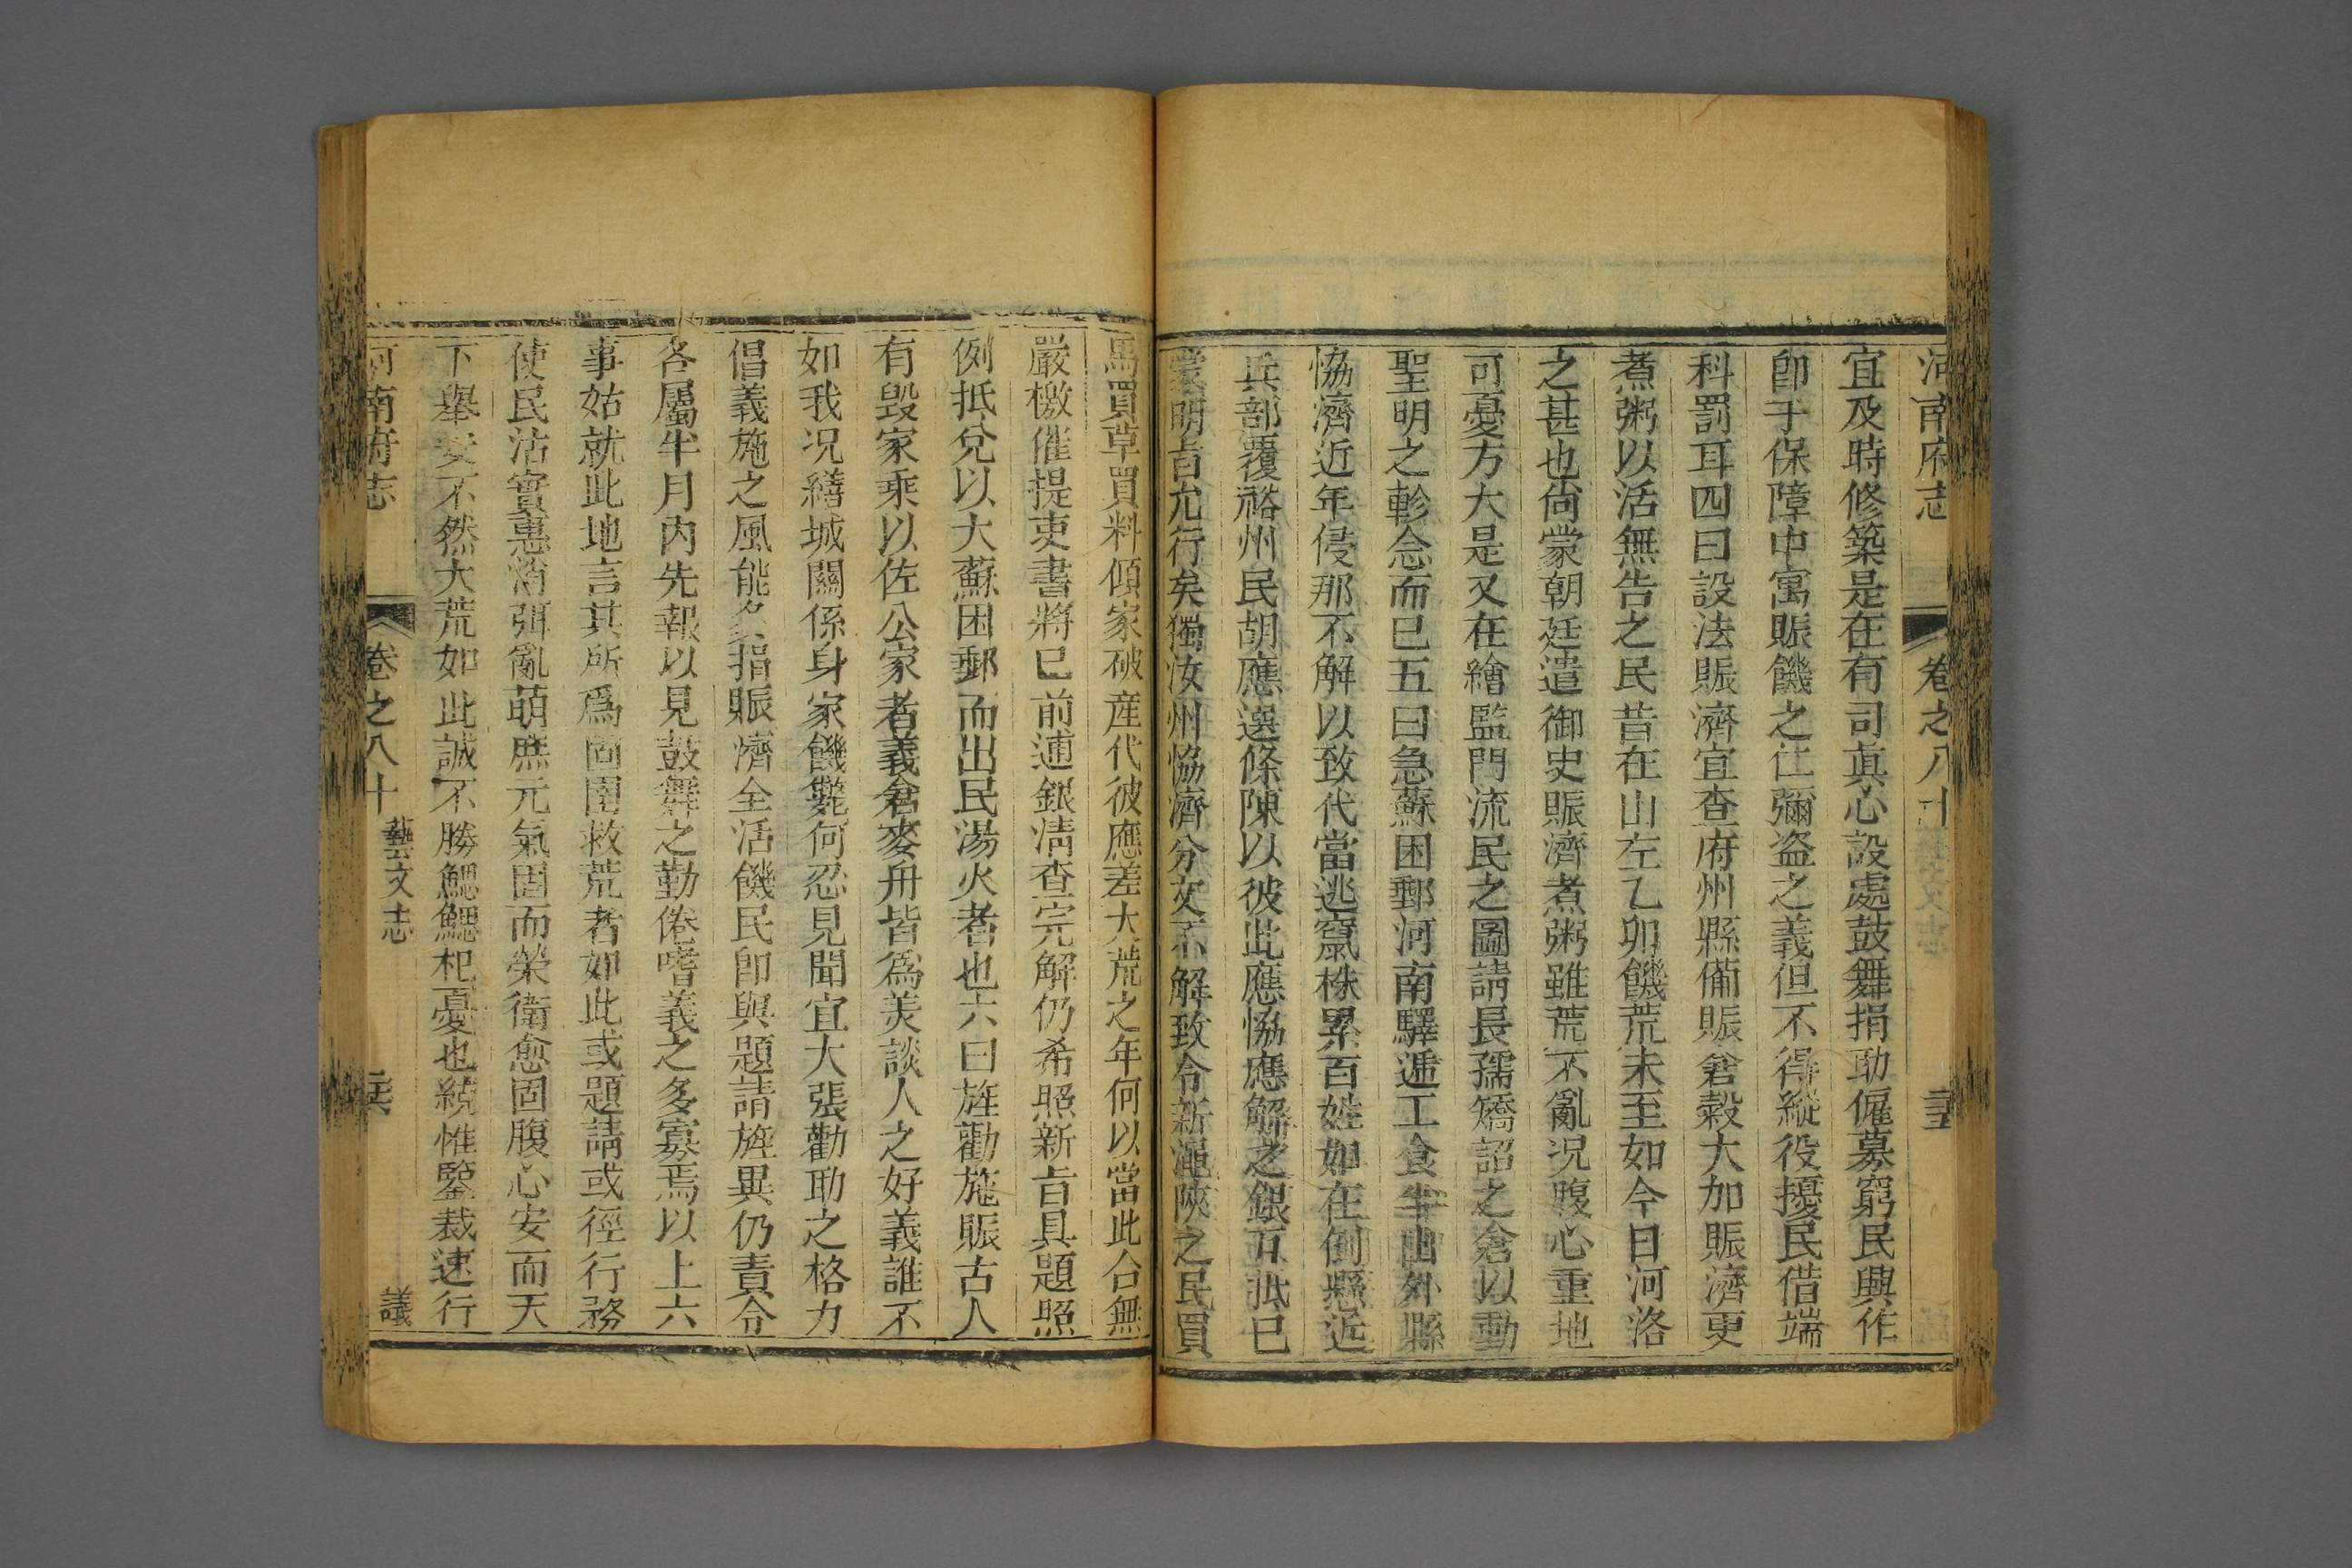 河南府志 卷之八十 三五
宜及時修築是在有司眞心設處鼓舞捐助僱募窮民興作
卽于保障中寓賑饑之仁彌盗之義但不得縱役擾民借端
科罰耳四曰設法賑濟宜查府州縣備賑倉穀大加賑濟更
煮粥以活無告之民昔在山左乙卯饑荒未至如今日河洛
之甚也尙蒙朝廷遣御史賑濟煮粥雖荒不亂况腹心重地
可憂方大是又在繪監門流民之圖請長孺矯詔之倉以動
聖明之軫念而已五曰急蘇困郵河南驛遞工食半出外縣
恊濟近年侵那不解以致代當逃竄株累百姓如在倒懸近
兵部覆裕州民胡應選條陳以彼此應恊應解之銀互抵已
蒙明旨允行矣獨汝州恊濟分文不解致令新澠陝之民買
馬買草買料傾家破産代彼應差大荒之年何以當此合無
嚴檄催提吏書將已前逋銀淸查完解仍希照新旨具題照
例抵兌以大蘇困郵而出民湯火者也六曰旌勸施賑古人
有毀家乘以佐公家者義倉麥舟皆爲美談人之好義誰不
如我况繕城關係身家饑斃何忍見聞宜大張勸助之格力
倡義施之風能多捐賑濟全活饑民卽與題請旌異仍責令
各屬半月内先報以見鼓舞之勤倦嗜義之多寡焉以上六
事姑就此地言其所爲固圉救荒者如此或題請或徑行務
使民沾實惠潜弭亂萌庶元氣固而榮衛愈固腹心安而天
下舉安不然大荒如此誠不勝鰓鰓杞憂也統惟鑒裁速行
河南府志 卷之八十 藝文志 議